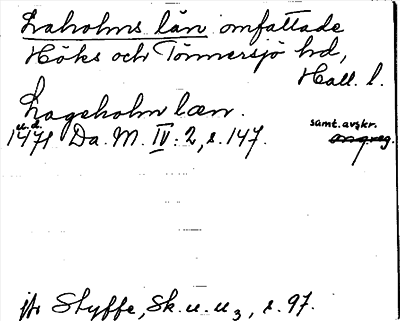 Laholms län omfattade
Höks och Tönnersjö hd,
Hall. l.
Lagæholm læn.
u. d.
1471 Da. M. IV: 2, s. 147.
samt. avskr.
jfr Styffe, Sk. u. u3, s. 97.